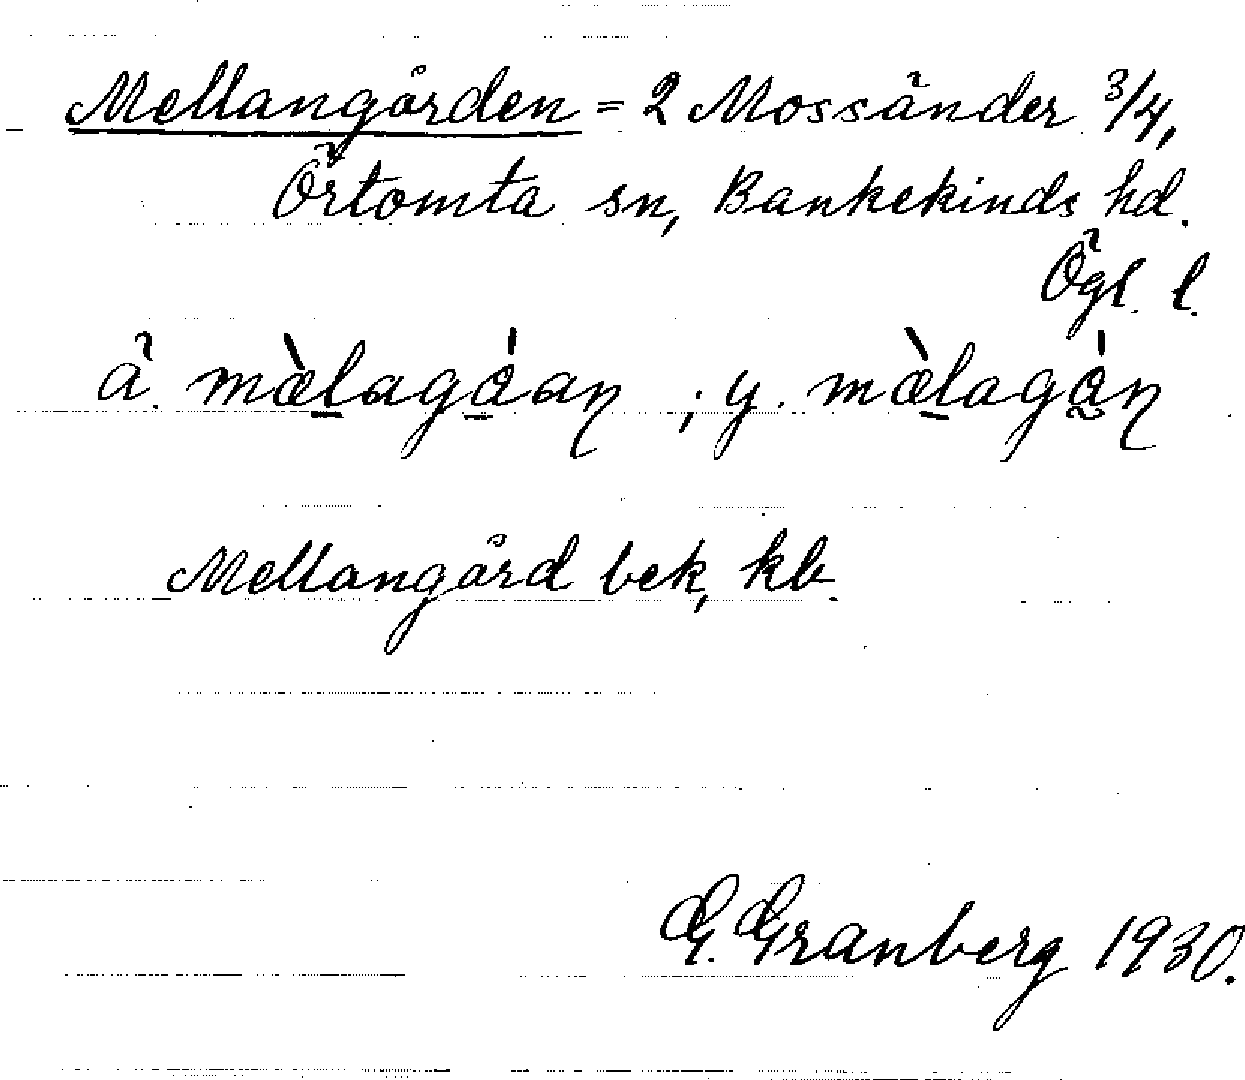 Mellangården = 2 Mossänder 3/4,
Örtomta sn, Bankekinds hd.
Ögl. l.
ä. mæ̀lagáan ; y. mæ̀lagán
Mellangård bek, kb.
G. Granberg 1930.